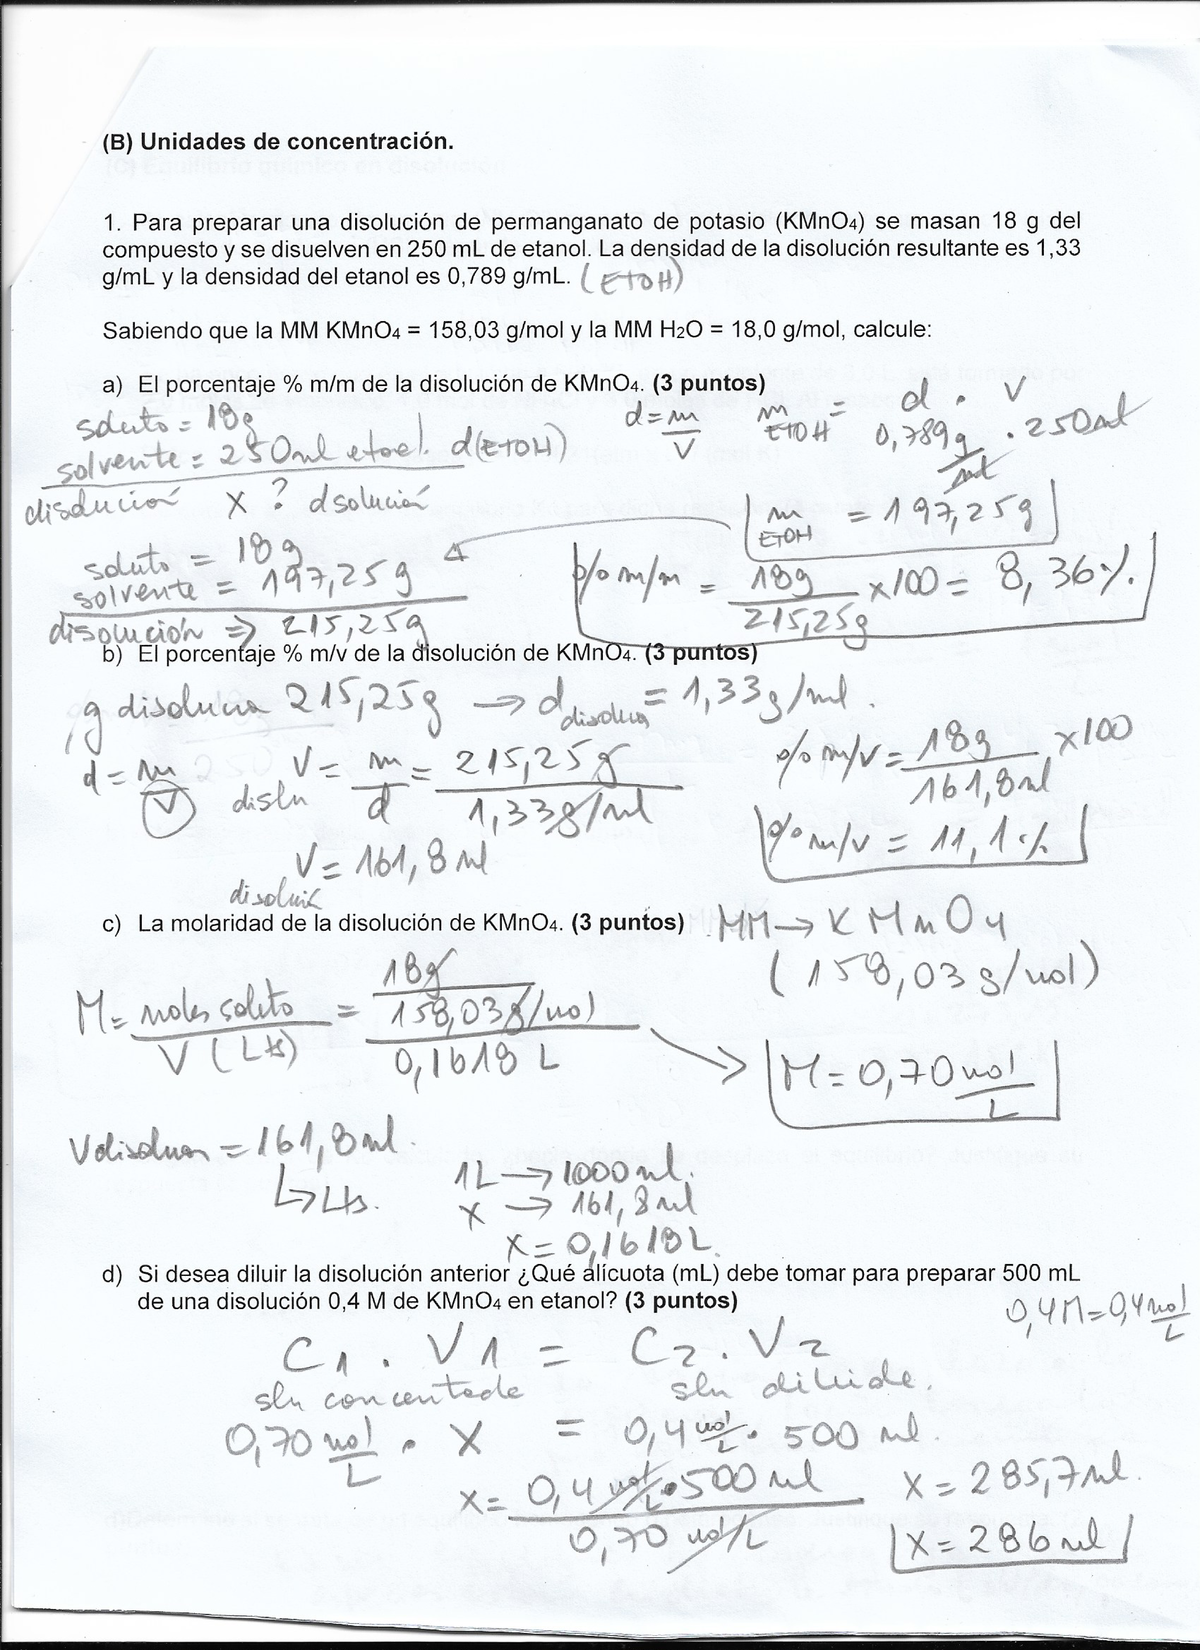 (B) Unidades de concentración.
1. Para preparar una disolución de permanganato de potasio (KMnO4) se masan 18 g del
compuesto y se disuelven en 250 mL de etanol. La densidad de la disolución resultante es 1,33
g/mL y la densidad del etanol es 0,789 g/mL. (ETOH)
Sabiendo que la MM KMnO4 = 158,03 g/mol y la MM H2O = 18,0 g/mol, calcule:
a) El porcentaje % m/m de la disolución de KMnO4. (3 puntos)
soluto = 18g
solvente = 250ml etoel. d(ETOH)
disolución X ? dsolución
d = m/V
m ETOH = d . V
0,789g/ml . 250ml
m ETOH = 197,25g
soluto = 18g
solvente = 197,25g
disolución => 215,25g
% m/m = 18g/215,25g x100 = 8,36%.
b) El porcentaje % m/v de la disolución de KMnO4. (3 puntos)
g 215,25g → d = 1,33g/ml.
d = m/V
V = m/d = 215,25g/1,33g/ml
V = 161,8 ml
% m/v = 18g/161,8ml x100
% m/v = 11,1 %
c) La molaridad de la disolución de KMnO4. (3 puntos)
MM → KMnO4
(158,03 g/mol)
M = moles soluto/V (Lts) = 18g/158,03g/mol/0,1618 L
M = 0,70 mol/L
= 161,8ml.
↳ Lts.
1L → 1000ml.
x → 161,8ml
x = 0,1618L.
d) Si desea diluir la disolución anterior ¿Qué alícuota (mL) debe tomar para preparar 500 mL
de una disolución 0,4 M de KMnO4 en etanol? (3 puntos)
0,4M = 0,4 mol/L
C1 . V1 = C2 . V2
sln concentrada sln diluida.
0,70 mol/L . X = 0,4 mol/L . 500 ml.
x = 0,4 mol/L . 500 ml/0,70 mol/L
x = 285,7ml.
x = 286 ml